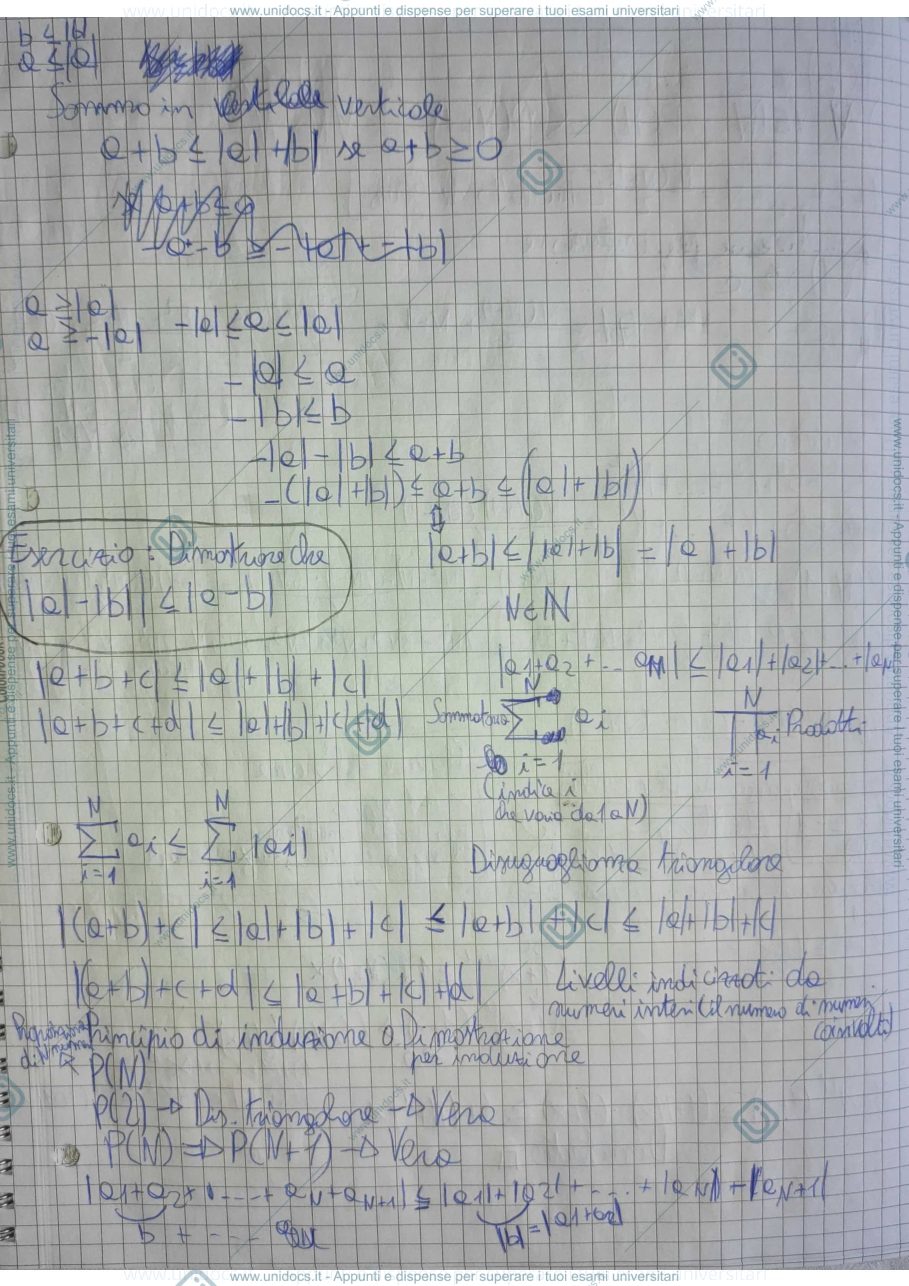 www.unidocs.it - Appunti e dispense per superare i tuoi esami universitari
b ≤ |b|
a ≤ |a|
Sommo in verticale
a + b ≤ |a| + |b| se a + b ≥ 0
-a - b ≤
a ≥ |a|
a ≥ -|a| -|a| ≤ a ≤ |a|
-|a| ≤ a
-|b| ≤ b
-|a| - |b| ≤ a + b
-(|a| + |b|) ≤ a + b ≤ (|a| + |b|)
⇕
Esercizio: Dimostrare che
||a| - |b|| ≤ |a - b|
|a + b| ≤ ||a| + |b|| = |a| + |b|
N ∈ ℕ
|a + b + c| ≤ |a| + |b| + |c|
|a1 + a2 + ... aN| ≤ |a1| + |a2| + ... + |aN|
|a + b + c + d| ≤ |a| + |b| + |c| + |d|
Sommatoria N ∑ i = 1 ai
N ∏ i = 1 ai Prodotti
(indice i
che varia da 1 a N)
N ∑ i = 1 ai ≤ N ∑ i = 1 |ai|
Disuguaglianza triangolare
|(a + b) + c| ≤ |a| + |b| + |c| ≤ |a + b| + |c| ≤ |a| + |b| + |c|
|(a + b) + c + d| ≤ |a + b| + |c| + |d|
Livelli indicizzati da
numeri interi (il numero di numeri
coinvolti)
Principio di induzione o Dimostrazione
per induzione
P(N)
P(2) → Dis. triangolare → Vera
P(N) ⇒ P(N + 1) → Vera
|a1 + a2 + ... + aN + aN+1| ≤ |a1| + |a2| + ... + |aN| + |aN+1|
b + ...
|b| = |a1 + a2|
www.unidocs.it - Appunti e dispense per superare i tuoi esami universitari